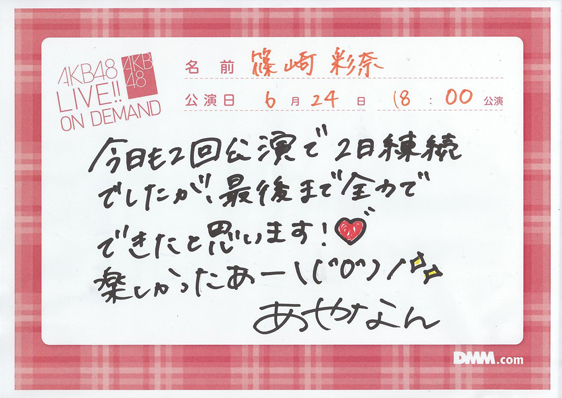 AKB48
LIVE!!
ON DEMAND
AKB
48
名前 篠崎 彩奈
公演日 6月24日 18:00公演
今日も2回公演で2日練続
でしたが、最後まで全力で
できたと思います!
楽しかったあー\(^o^)/
あやなん
DMM.com